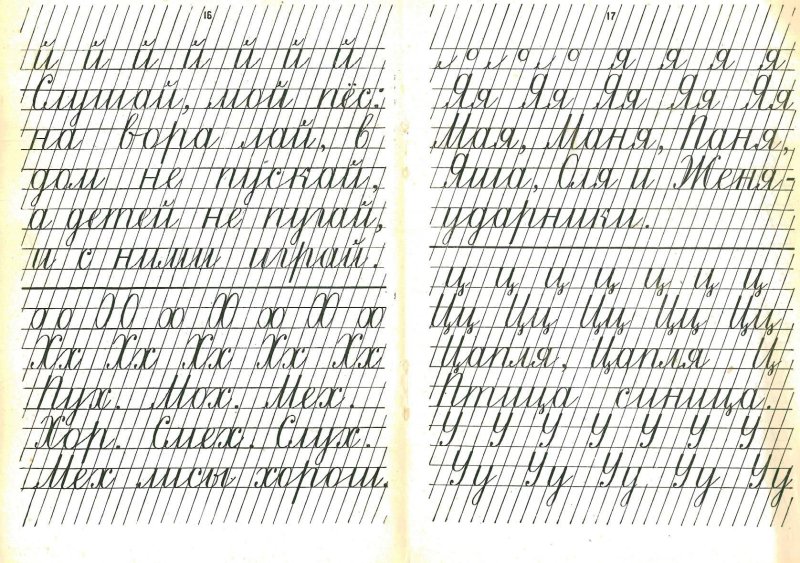 16
й й й й й й й
Слушай, мой пёс:
на вора лай, в
дом не пускай,
а детей не пугай,
и с ними играй.
х Х х Х х
Хх Хх Хх Хх Хх
Пух. Мох. Мех.
Хор. Смех. Слух.
Мех лисы хорош.
17
я я я я
Яя Яя Яя Яя Яя
Мая, Маня, Паня,
Яша, Оля и Женя-
ударники.
ц ц ц ц ц ц ц
Цц Цц Цц Цц Цц
Цапля, Цапля Ц
Птица синица.
У У У У У У У
Уу Уу Уу Уу Уу